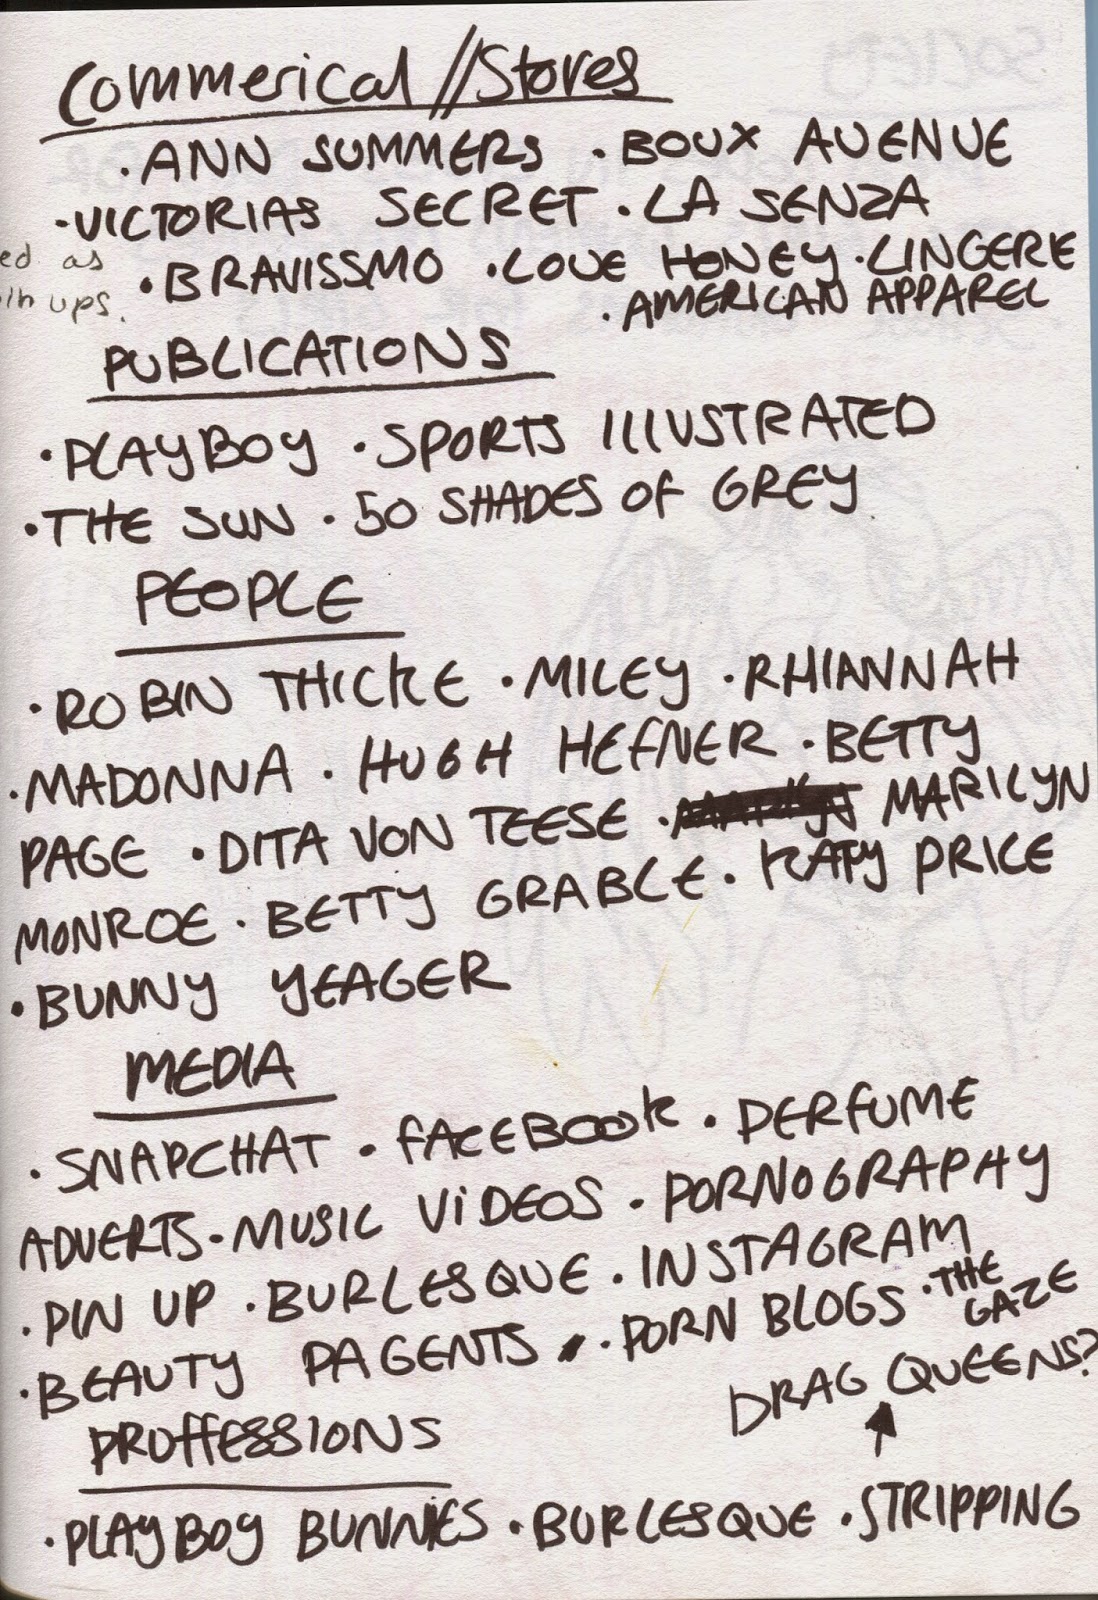 Commerical // Stores
· ANN SUMMERS · BOUX AVENUE
· VICTORIAS SECRET · LA SENZA
ed as
· BRAVISSMO · LOVE HONEY · LINGERIE
ups.
· AMERICAN APPAREL
PUBLICATIONS
· PLAYBOY · SPORTS ILLUSTRATED
· THE SUN · 50 SHADES OF GREY
PEOPLE
· ROBIN THICKE · MILEY · RHIANNAH
· MADONNA · HUGH HEFNER · BETTY
PAGE · DITA VON TEESE · MARILYN
MONROE · BETTY GRABLE · KATY PRICE
· BUNNY YEAGER
MEDIA
· SNAPCHAT · FACEBOOK · PERFUME
ADVERTS · MUSIC VIDEOS · PORNOGRAPHY
· PIN UP · BURLESQUE · INSTAGRAM
· BEAUTY PAGENTS · PORN BLOGS · THE
GAZE
DRAG QUEENS?
PROFFESSIONS
· PLAYBOY BUNNIES · BURLESQUE · STRIPPING